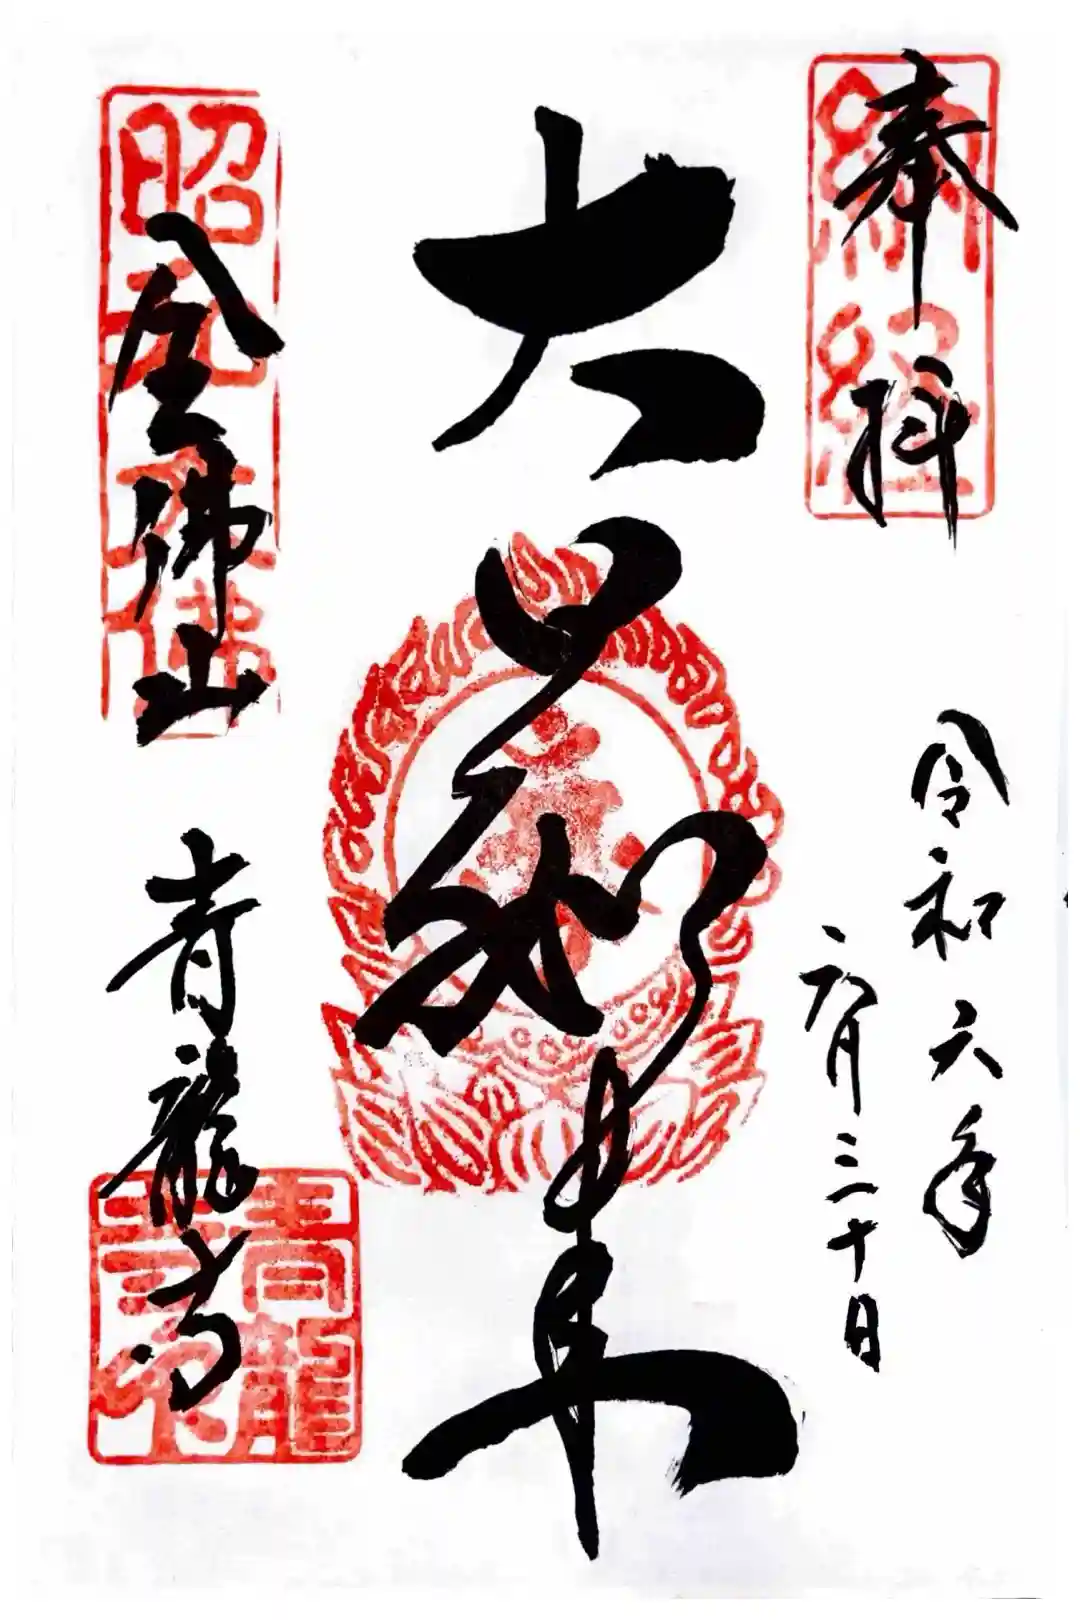 奉拝
納経
令和六年
六月三十日
大日如来
昭和大佛
全佛山 青龍寺
青龍寺印